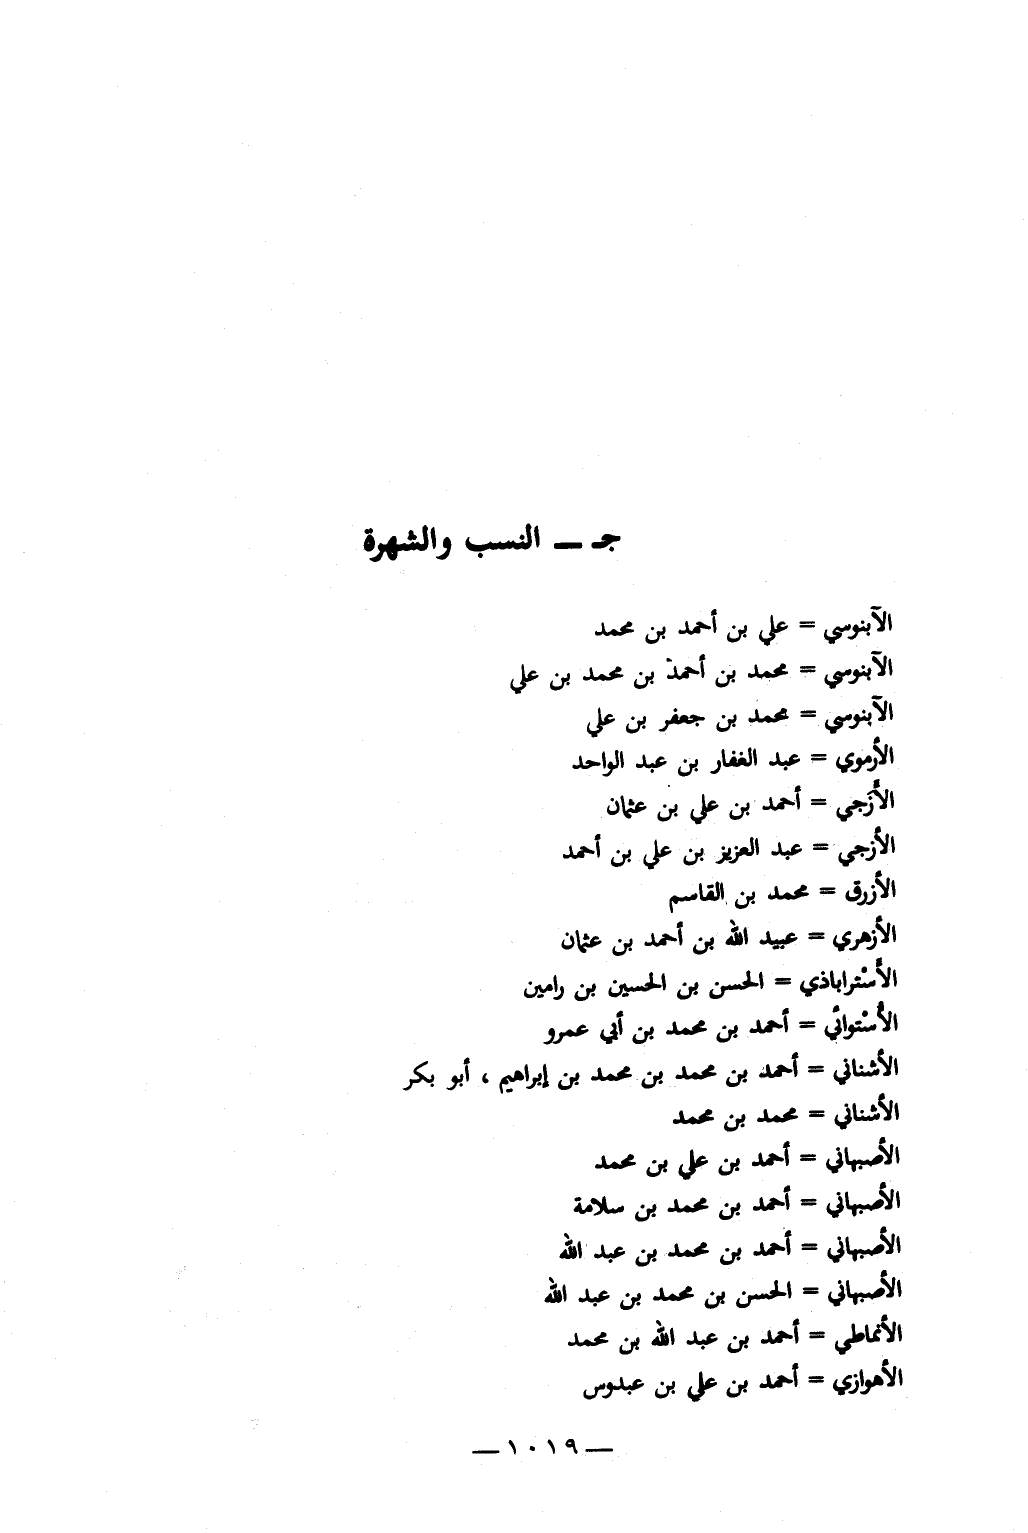 جـ ــ النسب والشهرة
الآبنوسي = علي بن أحمد بن محمد
الآبنوسي = محمد بن أحمد بن محمد بن علي
الآبنوسي = محمد بن جعفر بن علي
الأرموي = عبد الغفار بن عبد الواحد
الأَزَجي = أحمد بن علي بن عثمان
الأزجي = عبد العزيز بن علي بن أحمد
الأزرق = محمد بن القاسم
الأزهري = عبيد الله بن أحمد بن عثمان
الأَسْتراباذي = الحسن بن الحسين بن رامين
الأُسْتوائي = أحمد بن محمد بن أبي عمرو
الأشناني = أحمد بن محمد بن محمد بن إبراهيم ، أبو بكر
الأشناني = محمد بن محمد
الأصبهاني = أحمد بن علي بن محمد
الأصبهاني = أحمد بن محمد بن سلامة
الأصبهاني = أحمد بن محمد بن عبد الله
الأصبهاني = الحسن بن محمد بن عبد الله
الأنماطي = أحمد بن عبد الله بن محمد
الأهوازي = أحمد بن علي بن عبدوس
— ١٠١٩ —